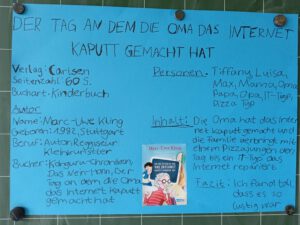 DER TAG AN DEM DIE OMA DAS INTERNET
KAPUTT GEMACHT HAT
Verlag: Carlsen
Seitenzahl: 60 S.
Buchart: Kinderbuch
Autor
Name: Marc-Uwe Kling
Geboren: 1982, Stuttgart
Beruf: Autor, Regisseur
Kleinkünstler
Bücher: Känguru-Chroniken,
Das NEINhorn, Der
Tag an dem die Oma
das Internet kaputt
gemacht hat
Personen: Tiffany, Luisa,
Max, Mama, Oma
Papa, Opa, IT-Typ,
Pizza Typ
Inhalt: Die Oma hat das Inter
net kaputt gemacht und
die Familie verbringt mit
einem Pizzajungen den
Tag bis ein IT-Typ das
Internet repariert
Fazit: Ich fand toll
dass es so
lustig war
Marc-Uwe Kling